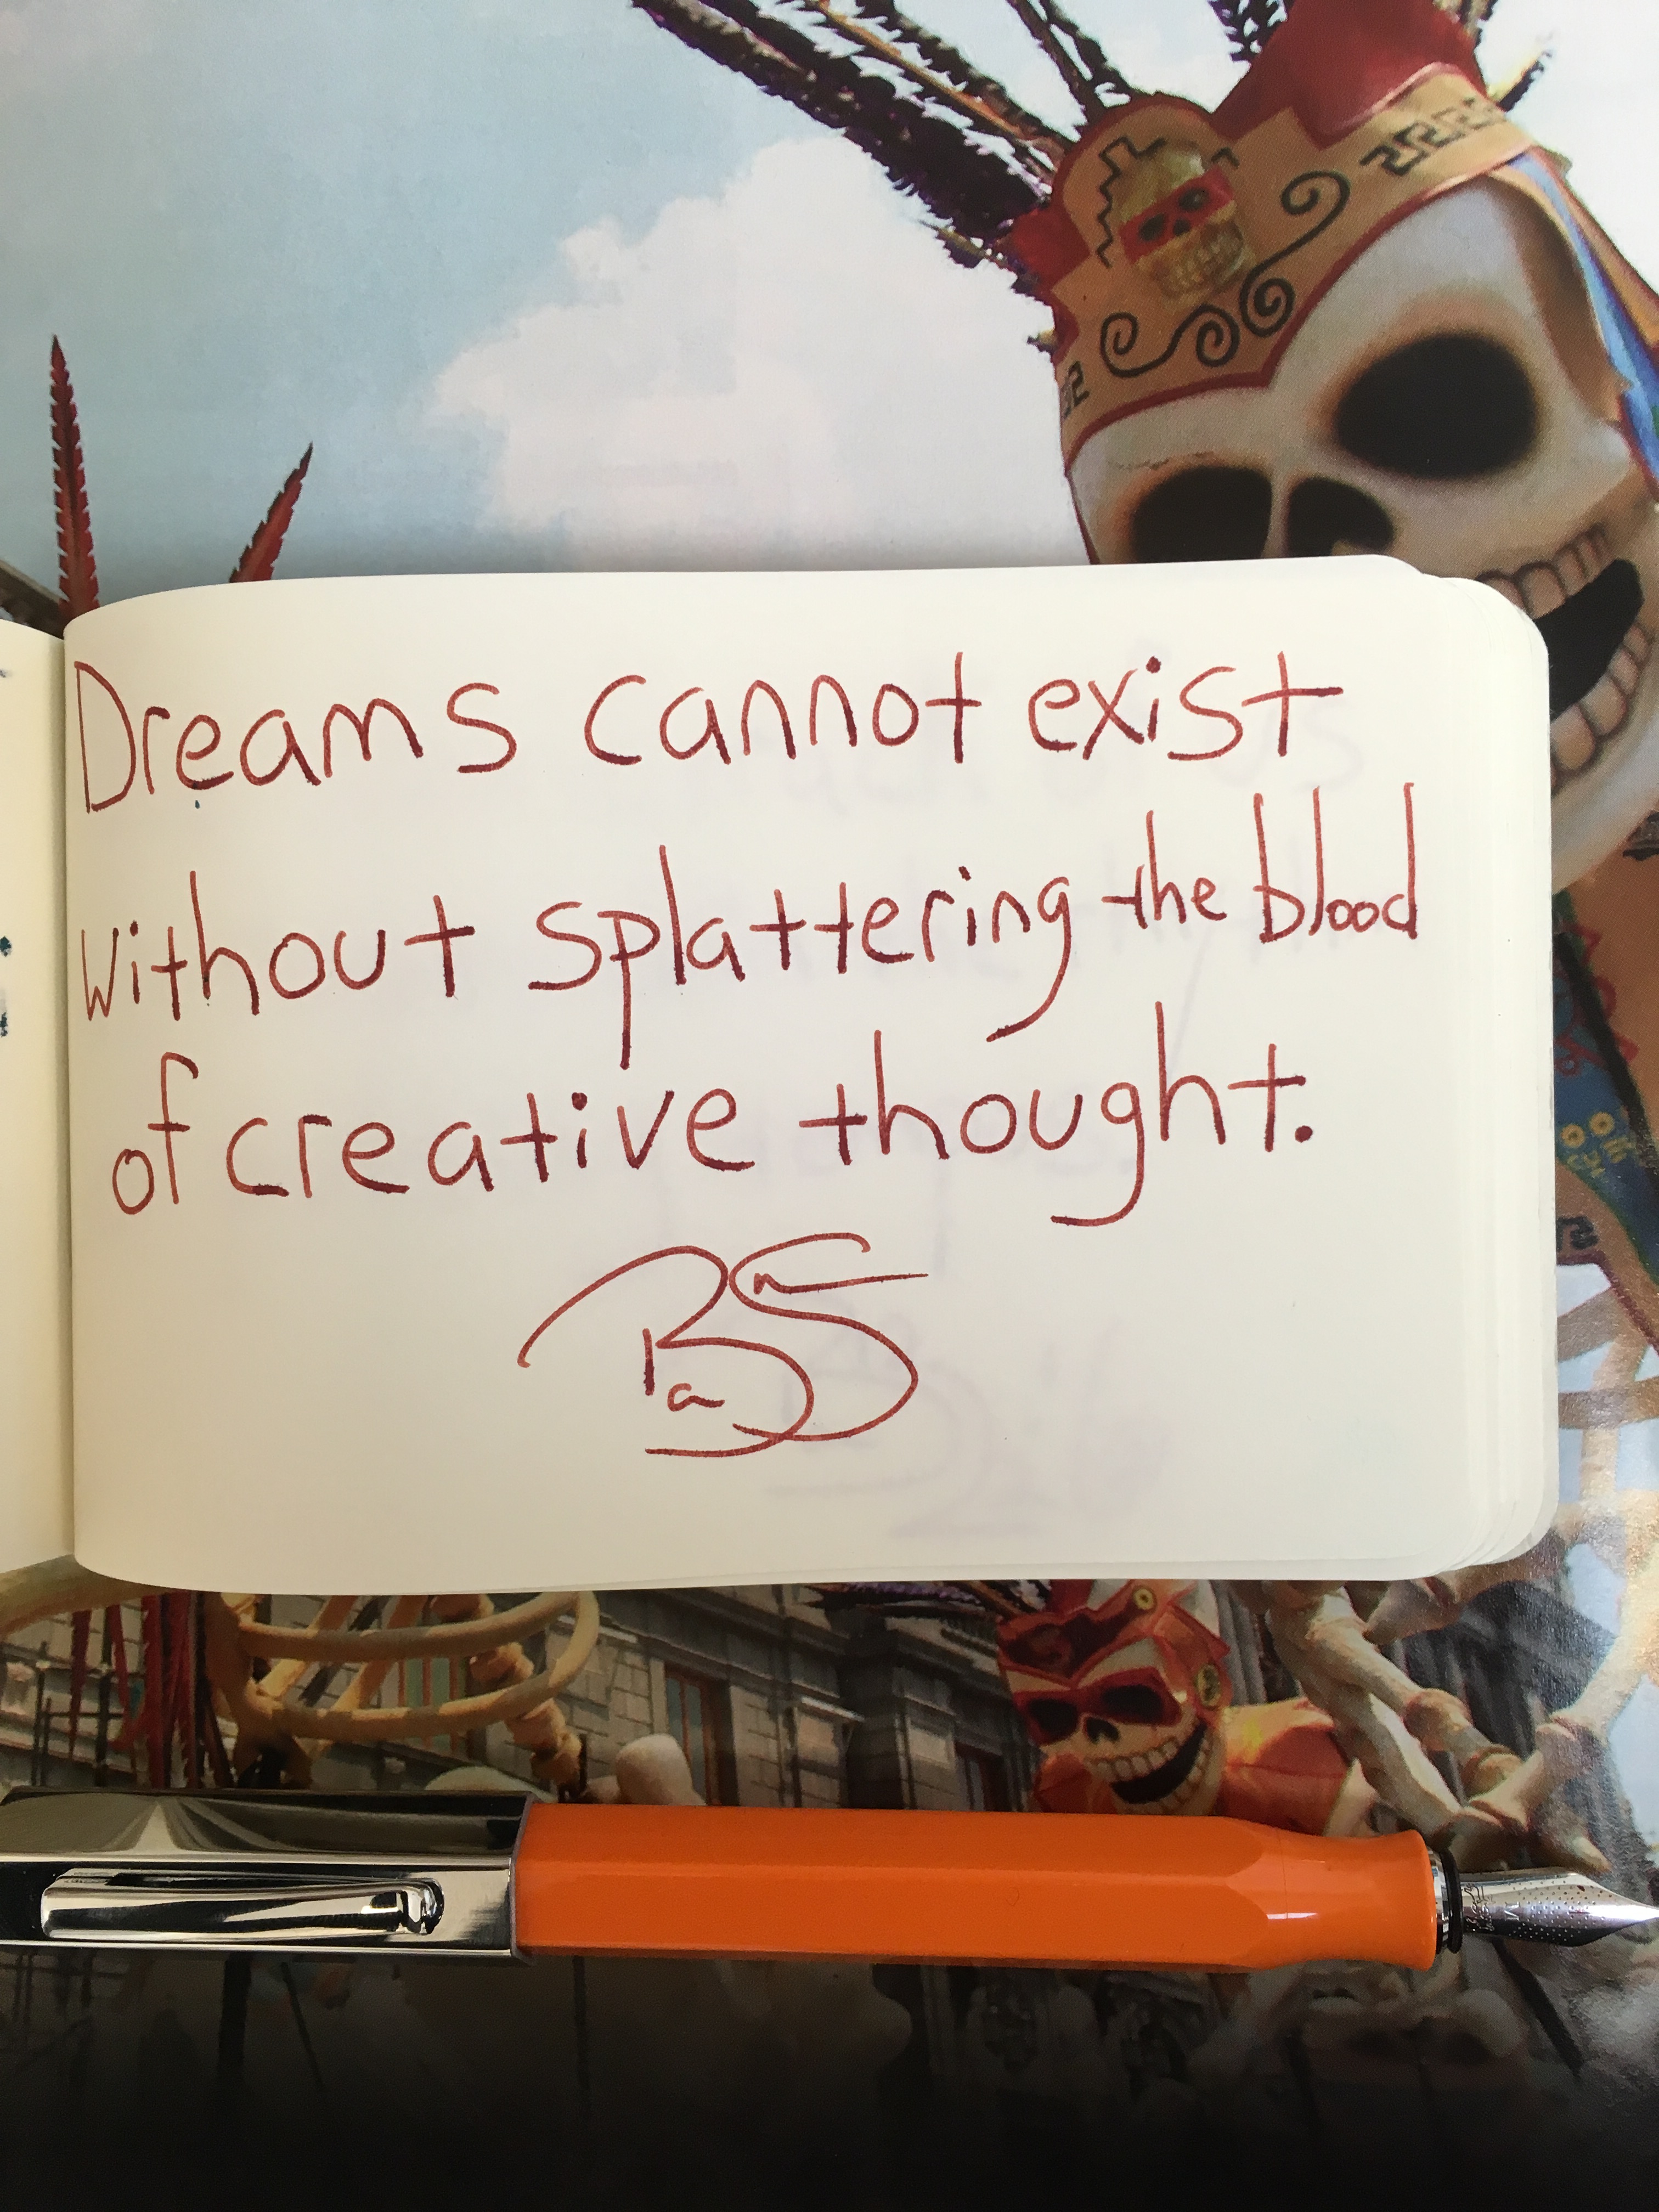 Dreams cannot exist
without splattering the blood
of creative thought.